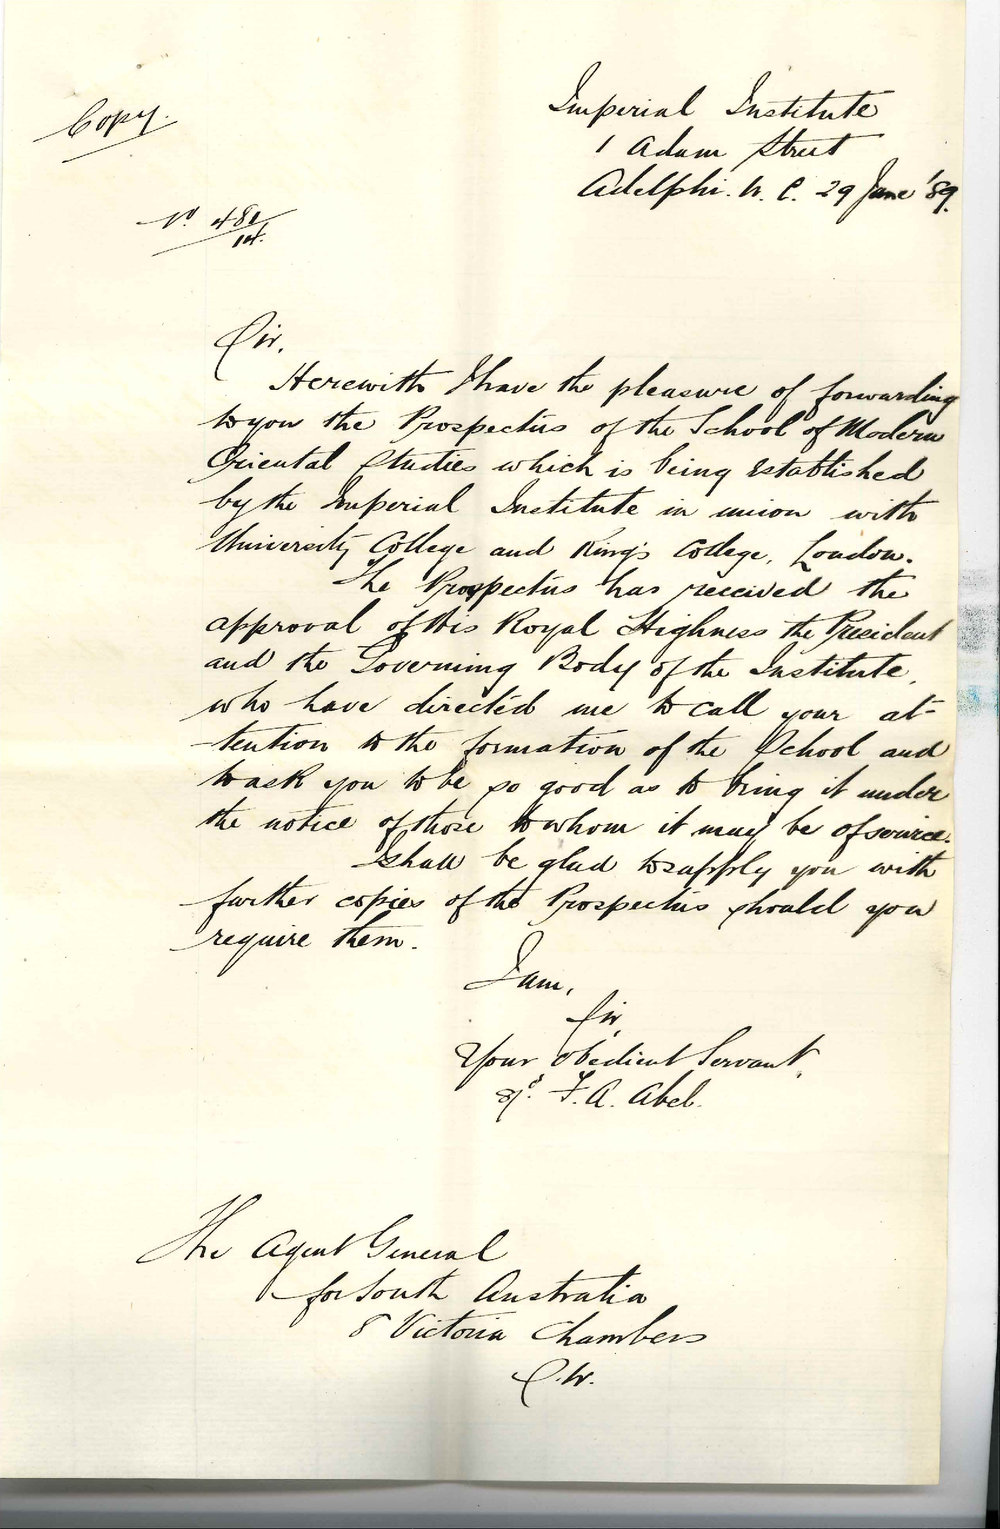 Copy.
Imperial Institute
1 Adam Street
Adelphi. W. C. 29 June '89.
No. 481/14.
Sir,
Herewith I have the pleasure of forwarding
to you the Prospectus of the School of Modern
Oriental Studies which is being established
by the Imperial Institute in union with
University College and King's College, London.
The Prospectus has received the
approval of His Royal Highness the President
and the Governing Body of the Institute,
who have directed me to call your at-
tention to the formation of the School and
to ask you to be so good as to bring it under
the notice of those to whom it may be of service.
I shall be glad to supply you with
further copies of the Prospectus should you
require them.
I am,
Sir,
Your obedient Servant,
F. A. Abel.
The Agent General
for South Australia
8 Victoria Chambers
S.W.